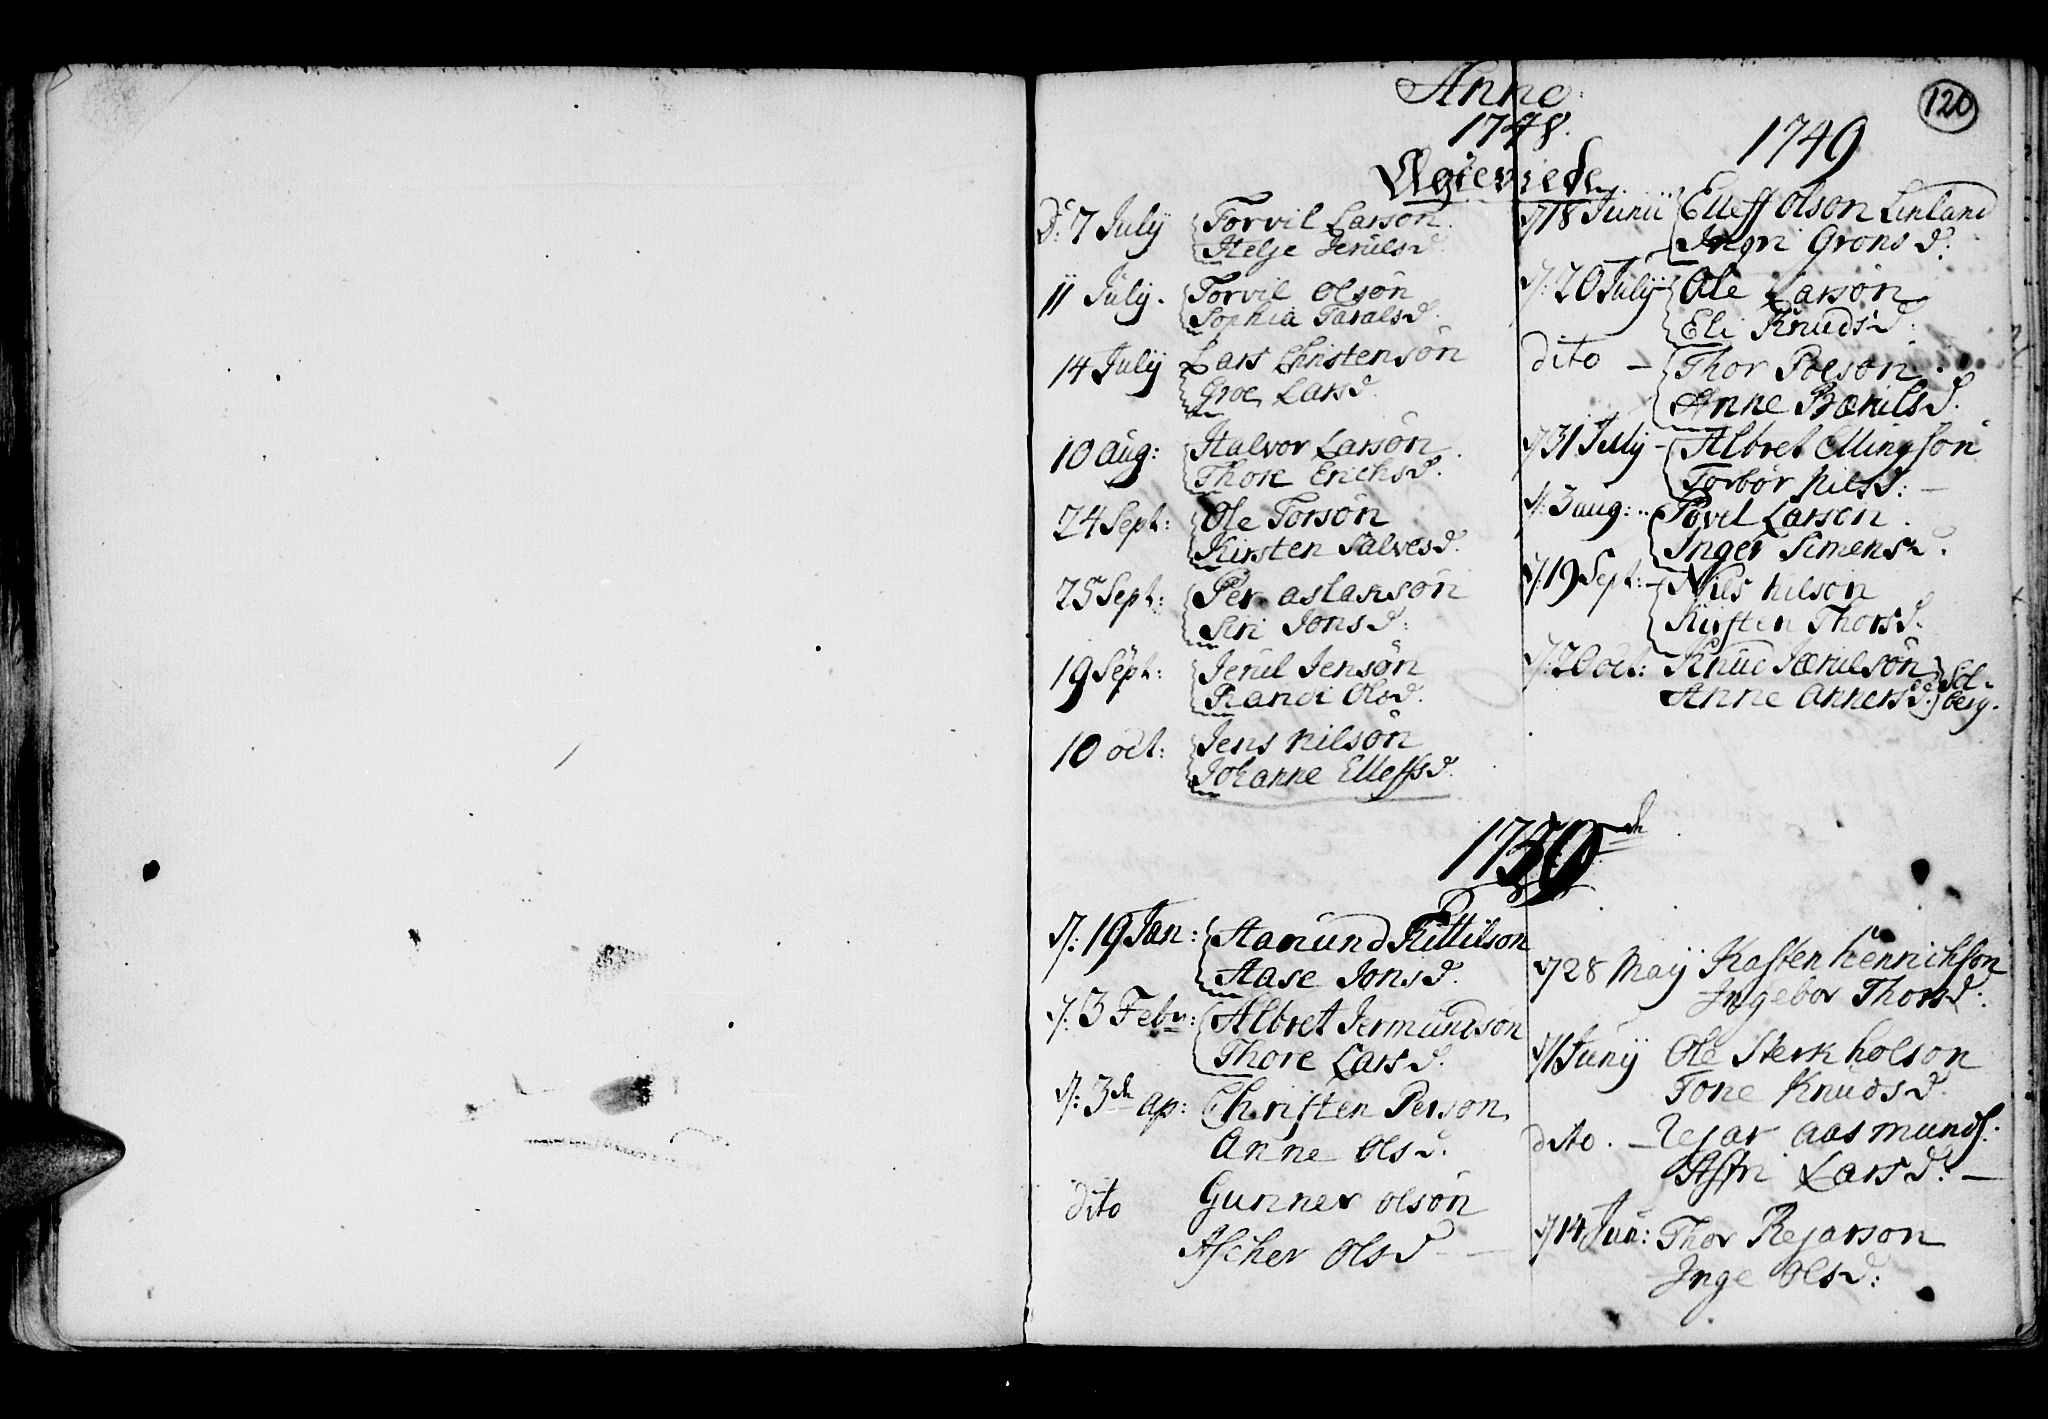 120
Anno
1748.
Ægteviede
D: 7 July Torvil Larsøn.
Helje Jerulsd.
11 July. Torvil Olsøn
Sophia Taralsd.
14 July Lars Christensøn
Groe Larsd.
10 aug: Halvor Larsøn.
Thore Erichsd.
24 Sept: Ole Torsøn
Kirsten Salvesd.
25 Sept: Per aslaksøn
Siri Jonsd:
19 Sept: Jerul Jensøn
Randi Olsd.
10 oct: Jens Nilsøn
Johanne Elleffsd.
1749
18 Junii Elleff Olson Linland
Ingri Gronsd.
20 July Ole Larsøn
Eli Knudsd:
dito – Thor Poelsøn.
Anne Bærulsd.
31 July – Albret Ellingsøn
Torbor Nilsd: –
3 aug: Povel Larsen.
Inger Simensd.
19 Sept: – Nils Nilson
Kirsten Thorsd.
20 oct: Knud Særulsøn
Anne Annersd. Sol-
berg.
1750
19 Jan: Aamund Kittilson
Aase Jonsd.
3 Febr: Albret Jermundson
Thore Larsd.
3 ap: Christen Person,
Anne Olsd.
dito Gunner Olsøn
Ascher Olsd –
28 May Kasten Henrichson
Ingebor Thorsd:
1 Juny Ole Sterkholson
Tone Knudsd.
dito. – Rejar Aasmunds.
Assri Larsd. –
14 Jun: Thor Rejarson
Inge Olsd: